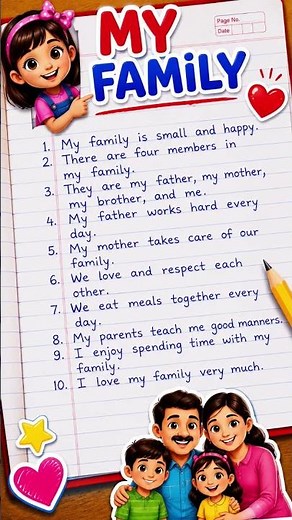 MY
FAMiLY
Page No.
Date
1. My family is small and happy.
2. There are four members in
my family.
3. They are my father, my mother,
my brother, and me.
4. My father works hard every
day.
5. My mother takes care of our
family.
6. We love and respect each
other.
7. We eat meals together every
day.
8. My parents teach me good manners.
9. I enjoy spending time with my
family.
10. I love my family very much.